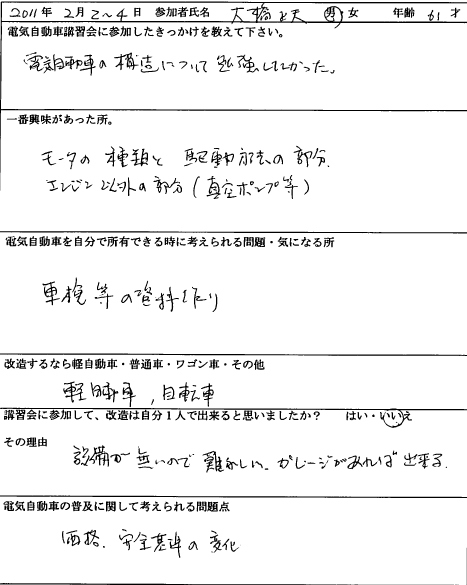 2011年 2月 2~4日 参加者氏名 大橋 天 男 女 年齢 61 才
電気自動車講習会に参加したきっかけを教えて下さい。
電気自動車の構造について勉強したかった。
一番興味があった所。
モータの種類と駆動方法の部分.
エンジン以外の部分(真空ポンプ等)
電気自動車を自分で所有できる時に考えられる問題・気になる所
車検等の資料作り
改造するなら軽自動車・普通車・ワゴン車・その他
軽自動車,自転車
講習会に参加して、改造は自分1人で出来ると思いましたか? はい・いいえ
その理由 設備が無いので難かしい、ガレージがあれば出来る.
電気自動車の普及に関して考えられる問題点
価格、安全基準の変化